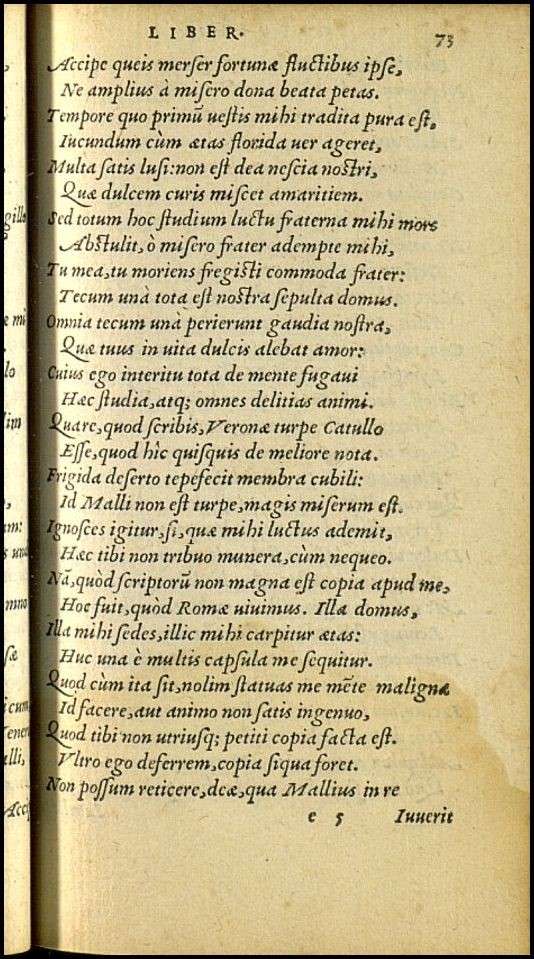 LIBER. 73
Accipe queis merser fortunæ fluctibus ipse,
Ne amplius à misero dona beata petas.
Tempore quo primũ uestis mihi tradita pura est,
Iucundum cùm ætas florida uer ageret,
Multa satis lusi: non est dea nescia nostri,
Quæ dulcem curis miscet amaritiem.
Sed totum hoc studium luctu fraterna mihi mors
Abstulit, ò misero frater adempte mihi,
Tu mea, tu moriens fregisti commoda frater:
Tecum unà tota est nostra sepulta domus.
Omnia tecum unà perierunt gaudia nostra,
Quæ tuus in uita dulcis alebat amor:
Cuius ego interitu tota de mente fugaui
Hæc studia, atq; omnes delitias animi.
Quare, quod scribis, Veronæ turpe Catullo
Esse, quod hîc quisquis de meliore nota.
Frigida deserto tepefecit membra cubili:
Id Malli non est turpe, magis miserum est.
Ignosces igitur, si, quæ mihi luctus ademit,
Hæc tibi non tribuo munera, cùm nequeo.
Nã, quòd scriptorũ non magna est copia apud me,
Hoc fuit, quòd Romæ uiuimus. Illa domus,
Illa mihi sedes, illic mihi carpitur ætas:
Huc una è multis capsula me sequitur.
Quod cùm ita sit, nolim statuas me mẽte maligna
Id facere, aut animo non satis ingenuo,
Quod tibi non utriusq; petiti copia facta est.
Vltro ego deferrem, copia siqua foret.
Non possum reticere, deæ, qua Mallius in re
e 5 Iuuerit